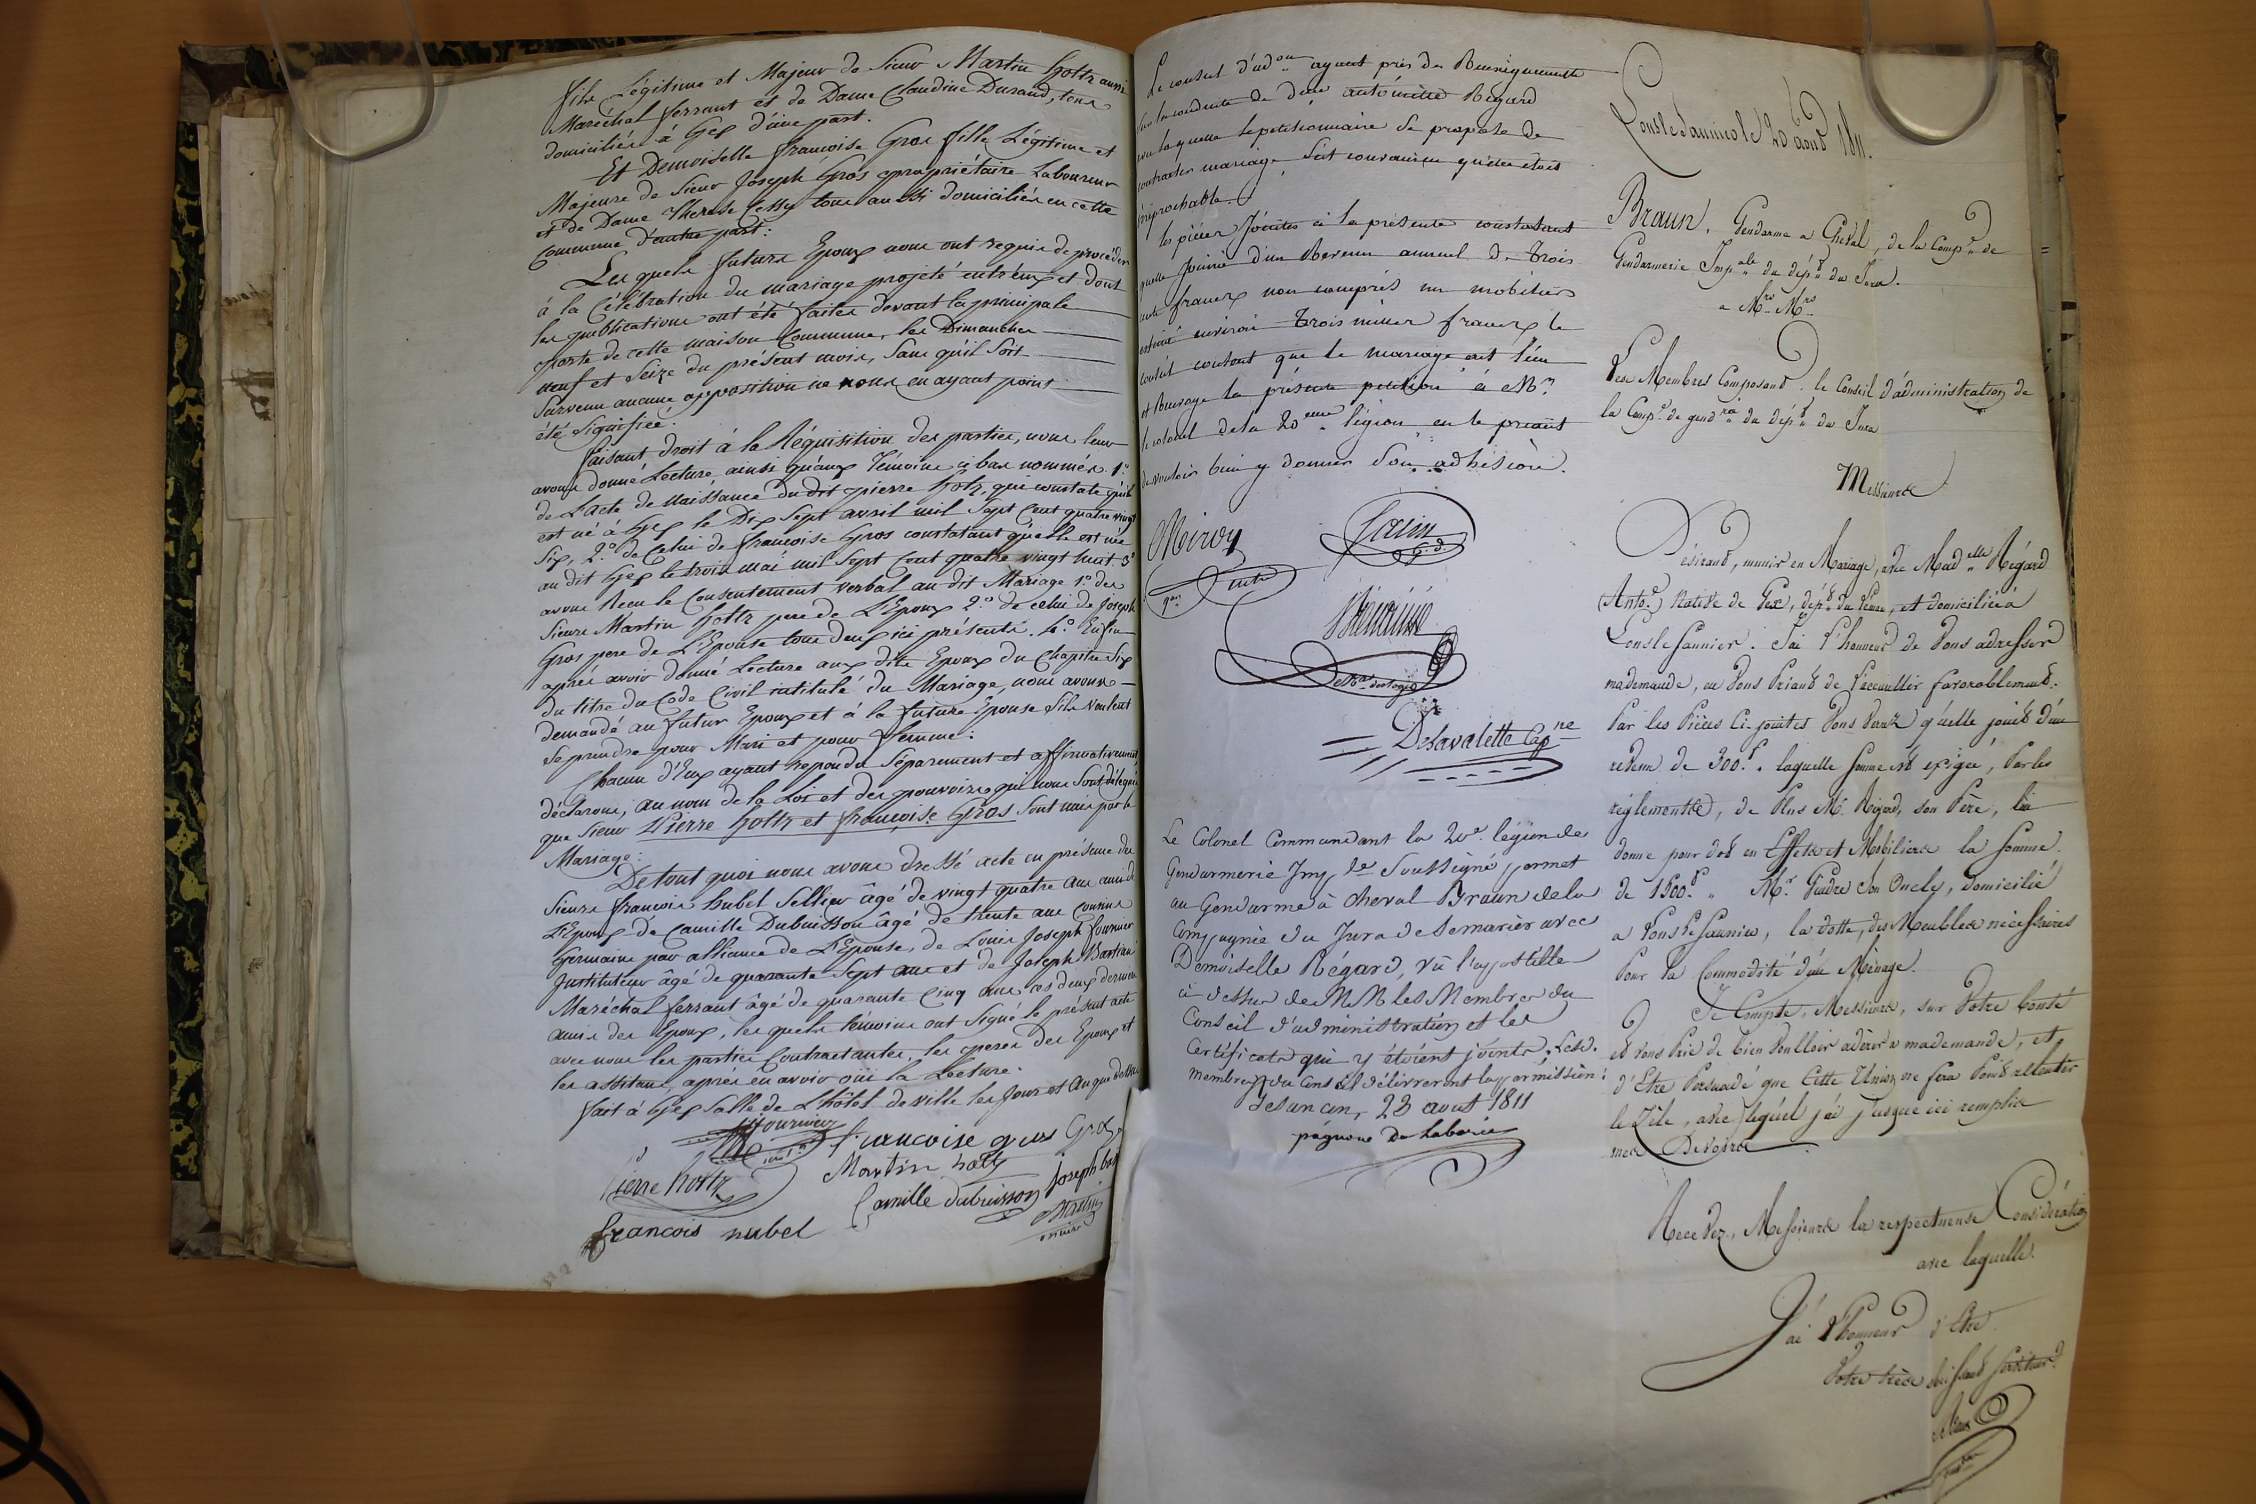 fils Légitime et Majeur de Sieur Martin Hottz aussi
Maréchal ferrant et de Dame Claudine Durand, tous
domiciliés à Gex d'une part.
Et Demoiselle françoise Gros fille Légitime et
Majeure de Sieur Joseph Gros propriétaire Laboureur
et de Dame Therese Cessy tous aussi domiciliés en cette
Commune d'autre part:
Les quels futurs Epoux nous ont requis de procéder
à la Célébration du mariage projeté entr'eux et dont
les publications ont été faites devant la principale
porte de cette maison Commune, les Dimanches
neuf et Seize du présent mois, Sans qu'il Soit
Survenu aucune opposition ne nous en ayant point
été Signifiée.
faisant droit à la Réquisition des parties, nous leur
avons donné Lecture, ainsi qu'aux Témoins ci bas nommés 1.o
de L'acte de naissance du dit pierre hottz, qui constate qu'il
est né à Gex le Dix Sept avril mil Sept Cent quatre vingt
Six, 2.o de Celui de françoise Gros constatant qu'elle est née
au dit Gex le trois mai mil Sept Cent quatre vingt huit. 3.o
avons Reçu le Consentement verbal au dit Mariage 1.o des
Sieurs Martin hottz pere de L'Epoux 2.o de celui de Joseph
Gros pere de L'Epouse tous deux ici présents. 4.o Enfin
après avoir donné Lecture aux dits Epoux du Chapitre Six
du titre du Code Civil intitulé du Mariage, nous avons
demandé au futur Epoux et à la future Epouse S'ils veulent
Se prendre pour Mari et pour femme:
Chacun d'Eux ayant repondu Séparement et affirmativement
déclarons, au nom de la Loi et des pouvoirs qui nous Sont délégués
que Sieur Pierre hottz et françoise Gros Sont unis par le
Mariage:
De tout quoi nous avons dressé acte en présence des
Sieurs françois hubel Sellier âgé de vingt quatre ans ami de
L'Epoux de Camille Dubuisson âgé de trente ans Cousin
Germain par alliance de L'Epouse, de Louis Joseph fournier
Instituteur âgé de quarante Sept ans et de Joseph Martin
Maréchal ferrant âgé de quarante Cinq ans ces deux derniers
amis des Epoux, les quels témoins ont Signé le présent acte
avec nous les parties Contractantes, les peres des Epoux et
les assistans, après en avoir oüi la Lecture.
fait à Gex Salle de L'hôtel de ville les Jour et An que dessus
fournier françoise gros Gros
Pierre hottz Martin hottz Joseph
Camille dubuisson Martin
françois hubel
Le conseil d'ad.on ayant pris des Renseignements
sur la conduite de d.elle antoinette Régard
avec laquelle le petitionnaire Se propose de
contracter mariage S'est convaincu qu'elle étoit
irréprochable.
les pièces Jointes à la présente constatent
qu'elle Jouira d'un Revenu annuel de Trois
cents francs non compris un mobilier
estimé environ Trois milles francs le
conseil consent que le mariage ait lieu
et Renvoye la présente petition à M.r
le colonel de la 20.eme légion en le priant
de vouloir bien y donner Son adhésion.
Miroy
Delavalette Cap.ne
Le Colonel Commandant la 20.e légion de
Gendarmerie Imp.le Soussigné, permet
au Gendarme à cheval Braun de la
Compagnie du Jura de Se marier avec
Demoiselle Régard, vû l'apostille
ci dessus de MM les Membres du
Conseil d'administration et les
Certificats qui y étoient joints. Lesd.
membres du Conseil délivreront la permission.
Besançon, 23 aout 1811
Lons le Saunier le 20 août 1811.
Braun, Gendarme a Cheval, de la Comp.e de
Gendarmerie Imp.ale du dép.t du Jura.
a M.rs M.rs
Les Membres Composant le Conseil d'administration de
la Comp.e de gend.rie du dép.t du Jura
Messieurs
Désirant, m'unir en Mariage, avec Mad.elle Régard
(Anto.te) Native de Gex, dép.t du Léman, et domiciliée à
Lons le Saunier. J'ai l'honneur de Vous adresser
ma demande, en Vous Priant de l'accueillir favorablement.
Par les Pièces Ci-jointes Vous Verrez qu'elle jouit d'un
revenu de 300.f, laquelle Somme est exigée, Par les
réglements, de Plus M. Régard, Son Père, lui
donne pour dot en Effets et Mobiliers la Somme
de 1500.f M.r Son Oncle, domicilié
a Lons le Saunier, la dotte, des Meubles nécessaires
Pour la Commodité d'un Ménage.
Je Compte, Messieurs, sur Votre bonté
et vous Prie de bien Voulloir adérer a ma demande, et
d'Etre Persuadé que Cette Union ne fera Point rallentir
le Zèle, avec lequel j'ai jusque ici remplis
mes Devoirs
Recevez, Messieurs la respectueuse Considération
avec laquelle
J'ai l'honneur d'Etre
Votre très obéissant Serviteur
Braun